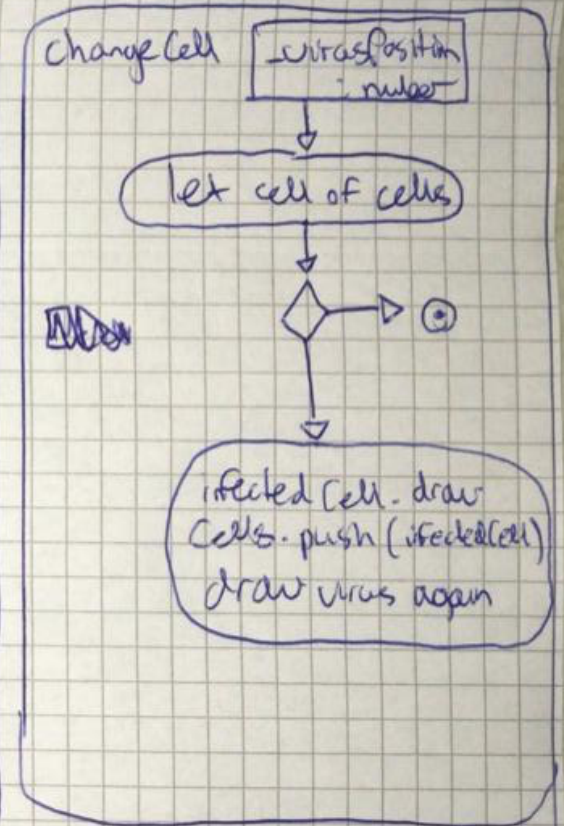 changeCell
_virusPosition
: number
let cell of cells
infectedCell.draw
Cells.push(ifectedCell)
draw virus again